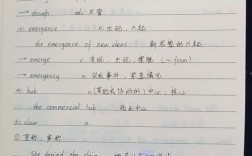 → though adv. 不管
ω emergence n. 出现，兴起
the emergence of new ideas 新思想的兴起
→ emerge v. 浮现，出现，摆脱 (~ from)
→ emergency n. 突发事件，紧急情况
ω hub n. (某地或活动的) 中心，核心
the commercial hub 商业中心
ω claim n.
① 宣称，声称
She denied the claim